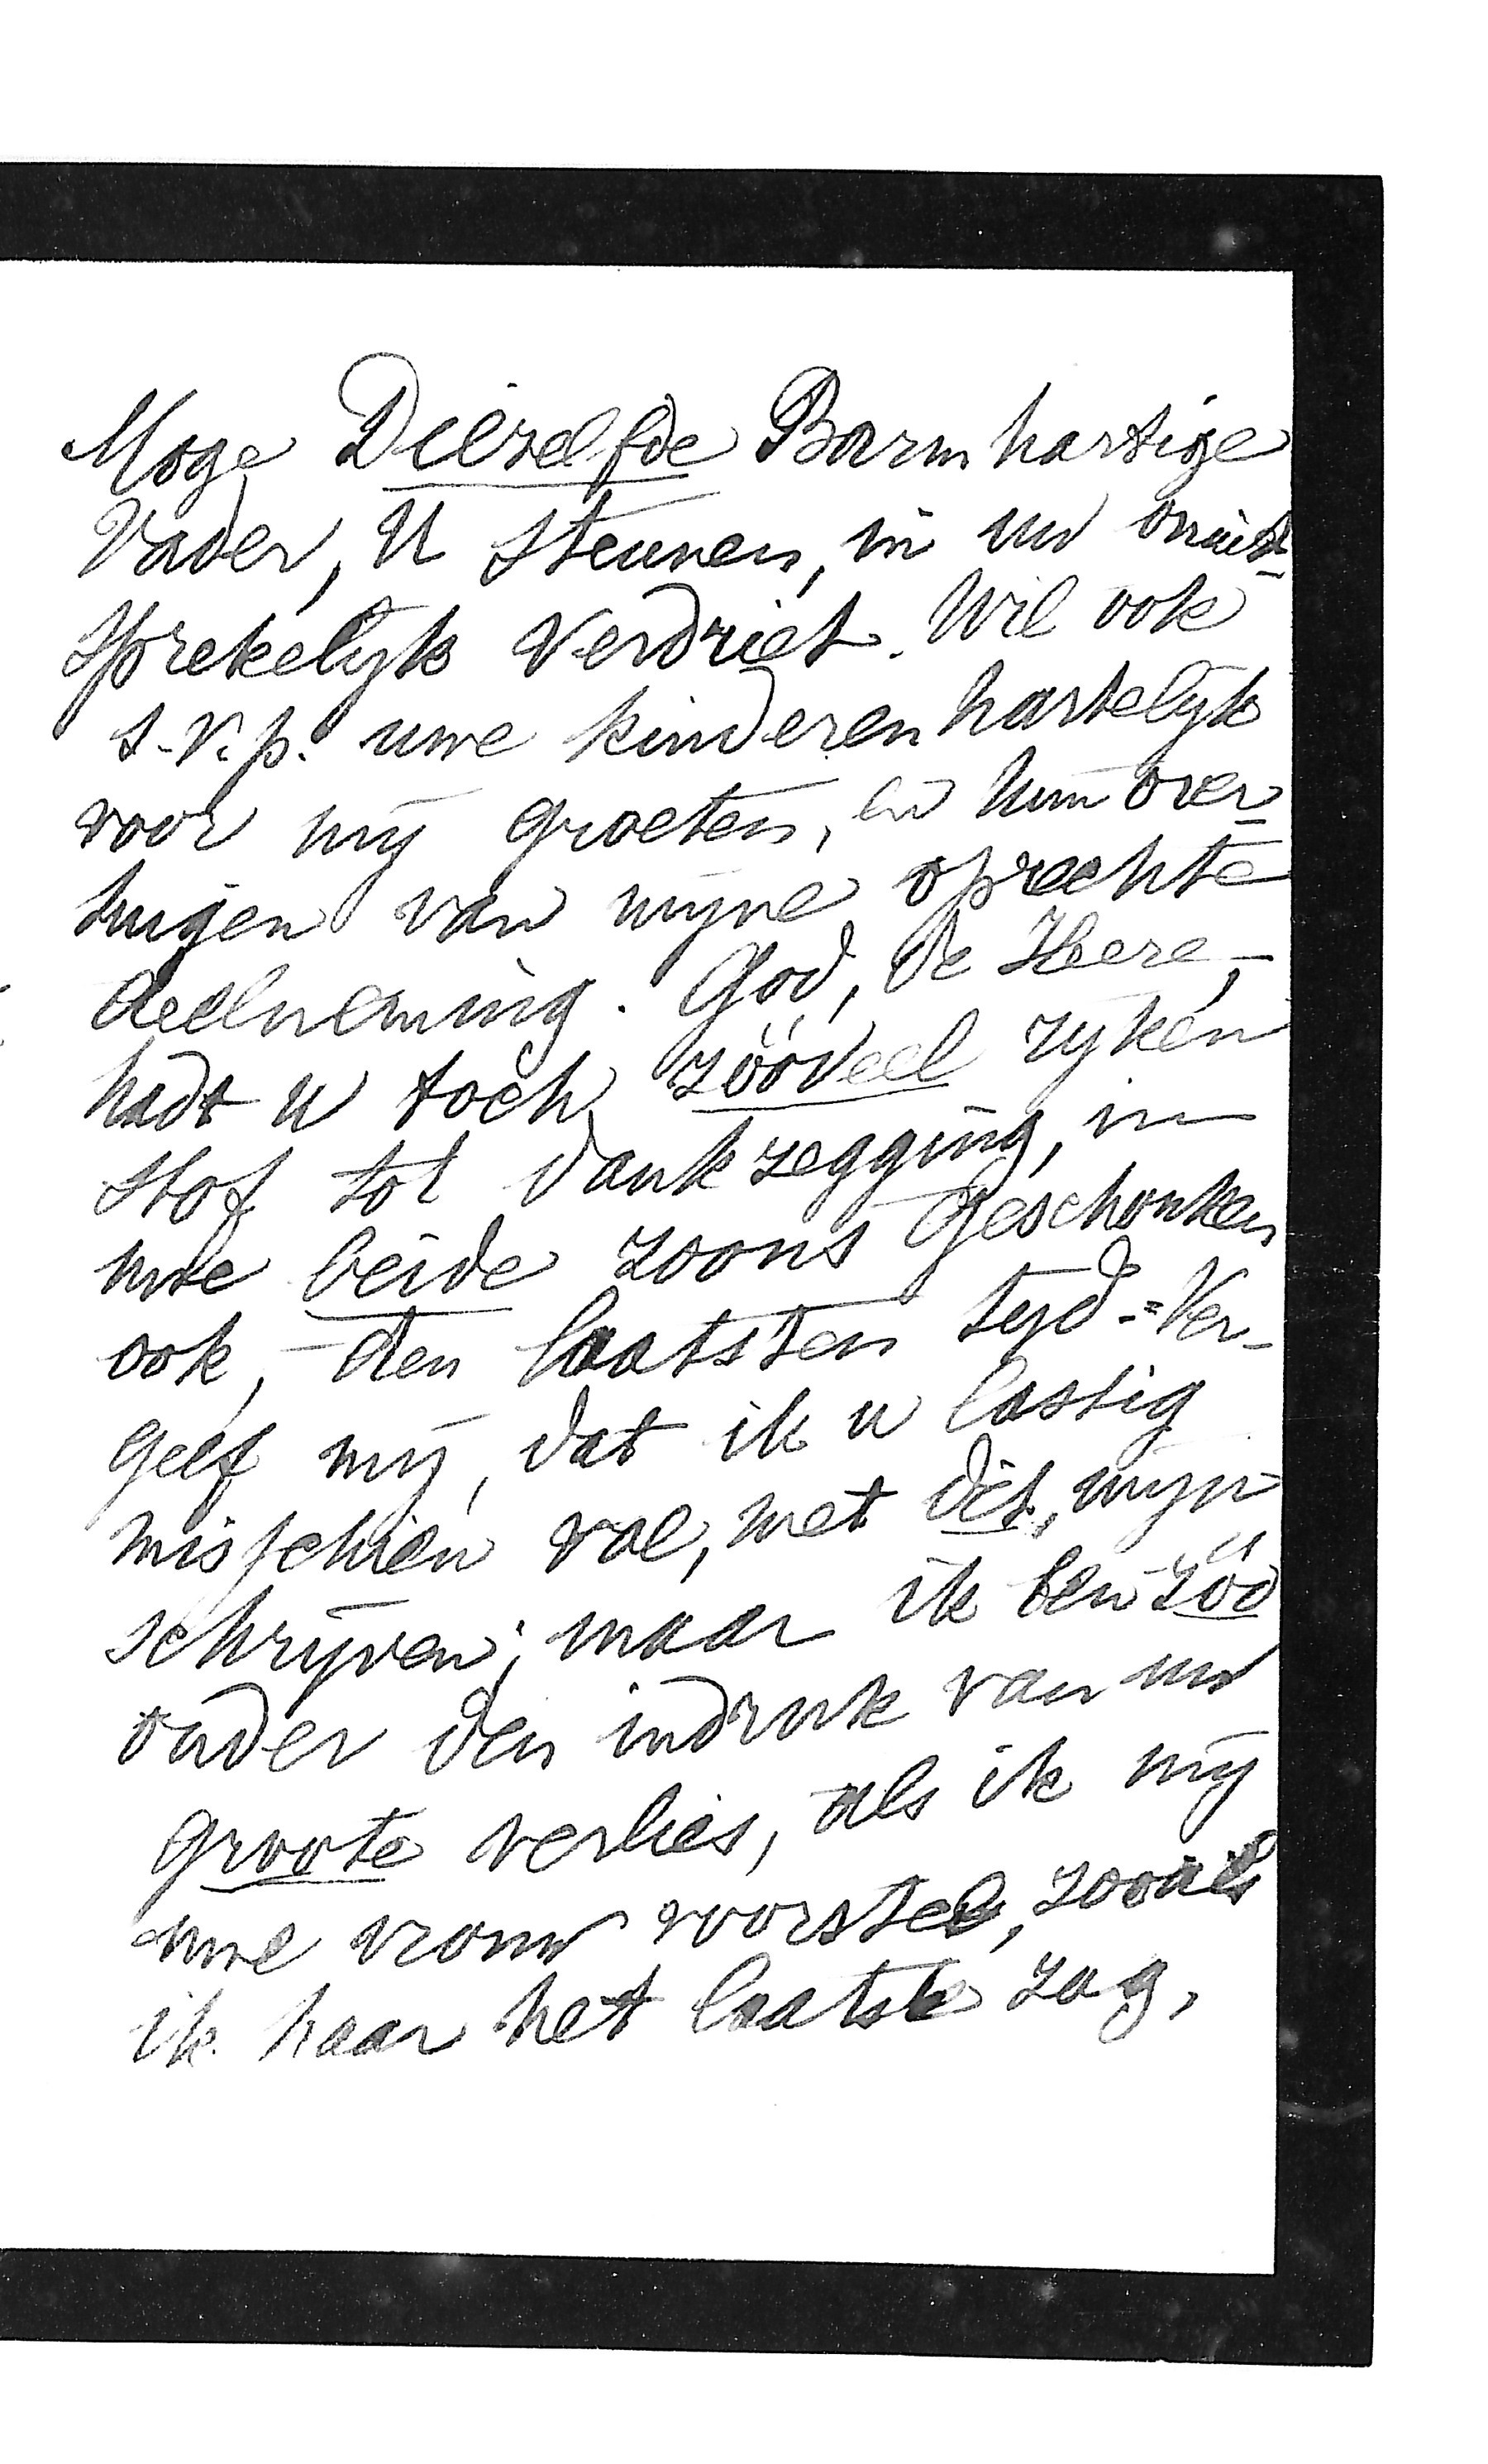 Moge Diezelfde Barmhartige
Vader, U steunen, in uw onuit-
sprekelyk verdriet. Wil ook
s.v.p. uwe kinderen hartelyk
voor mÿ groeten, en hun over-
tuigen van mÿne oprechte
deelneming. God, de Heere,-
hadt U toch zóóveel ryken
stof tot dankzegging, in
uwe beide zoons geschonken
ook, - den laatsten tyd. = Ver-
geef mÿ, dat ik u lastig
misschien val, met dit, mÿn
schrÿven; maar ik ben zóó
onder den indruk van uw
groote verlies, als ik mÿ
uwe vrouw voorstel, zooals
ik haar het laatste zag,